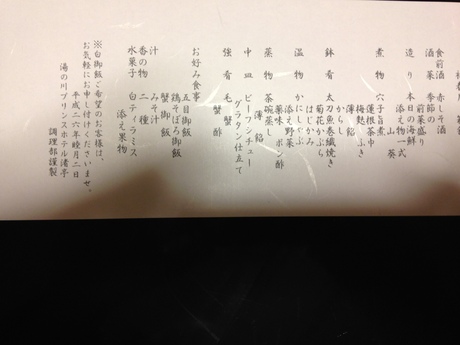 食前酒 赤しそ酒
酒菜 季節の
前菜盛り
造り 本日の海鮮
添え物一式
山葵
煮物 穴子旨煮
蓮根茶巾
梅麩 ふき
薄餡
鉢肴 太刀魚巻繊焼き
菊花かぶら
はじかみ
温物 かにしゃぶ
添え野菜
薬味 ポン酢
蒸物 茶碗蒸し
薄餡
中皿 ビーフシチュー
グラタン仕立て
強肴 毛蟹
蟹酢
お好み食事
五目御飯
鶏そぼろ御飯
蟹御飯
汁 みそ汁
香の物 二種
水菓子 白ティラミス
添え果物
※白御飯ご希望のお客様は、
お気軽にお申し付けくださいませ。
平成二六年睦月二日
湯の川プリンスホテル渚亭
調理部謹製